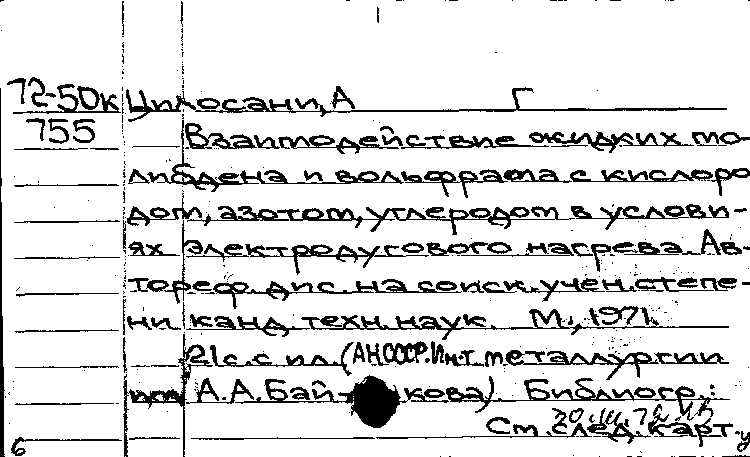 72-50к Цилосани, А Г
755 Взаимодействие жидких мо-
либдена и вольфрама с кислоро
дом, азотом, углеродом в услови-
ях электродугового нагрева. Ав-
тореф. дис. на соиск. учен. степе-
ни канд. техн. наук. М., 1971.
21с. с ил. (АН СССР. Ин-т металлургии
им А.А. Бай-кова). Библиогр.:
См. след. карт.
б